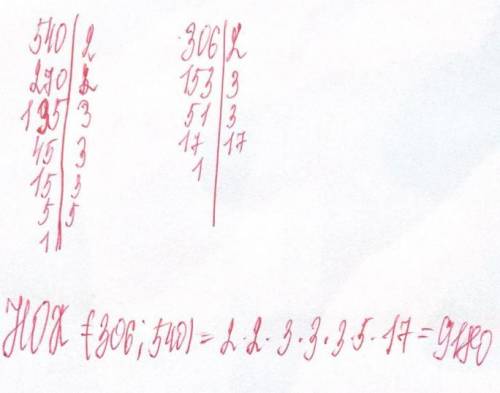 540 | 2
270 | 2
135 | 3
45 | 3
15 | 3
5 | 5
1 |
306 | 2
153 | 3
51 | 3
17 | 17
1 |
НОК (306; 540) = 2·2·3·3·3·5·17 = 9180